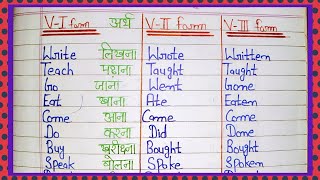 V-I form अर्थ V-II form V-III form
Write लिखना Wrote Written
Teach पढ़ाना Taught Taught
Go जाना Went Gone
Eat खाना Ate Eaten
Come आना Came Come
Do करना Did Done
Buy खरीदना Bought Bought
Speak बोलना Spoke Spoken